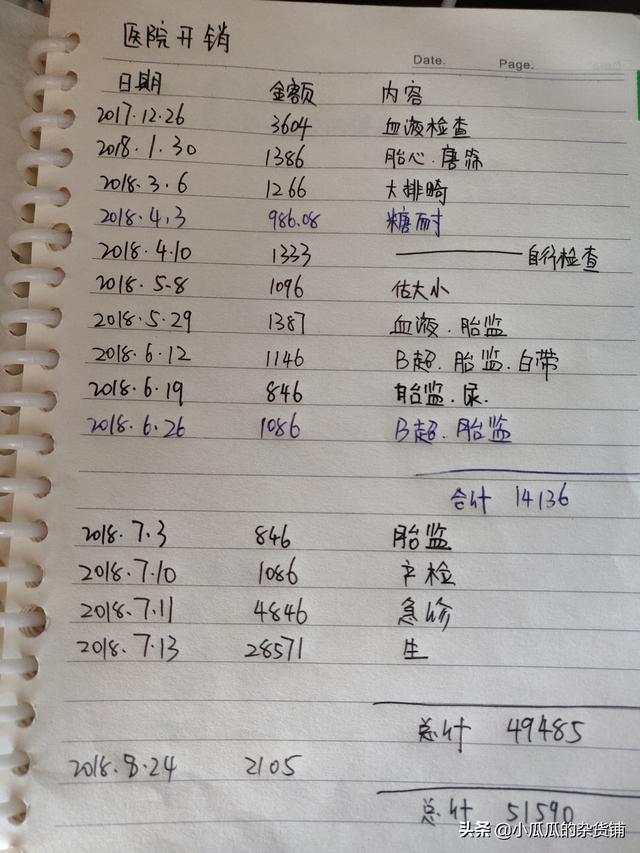 医院开销
Date. Page.
日期 金额 内容
2017.12.26 3604 血液检查
2018.1.30 1386 胎心.唐筛
2018.3.6 1266 大排畸
2018.4.3 986.08 糖耐
2018.4.10 1333 ——— 自行检查
2018.5.8 1096 估大小
2018.5.29 1387 血液.胎监
2018.6.12 1146 B超.胎监.白带
2018.6.19 846 胎监.尿.
2018.6.26 1086 B超.胎监
合计 14136
2018.7.3 846 胎监
2018.7.10 1086 产检
2018.7.11 4846 急诊
2018.7.13 28571 生
总计 49485
2018.8.24 2105
总计 51590
头条 @小瓜瓜的杂货铺